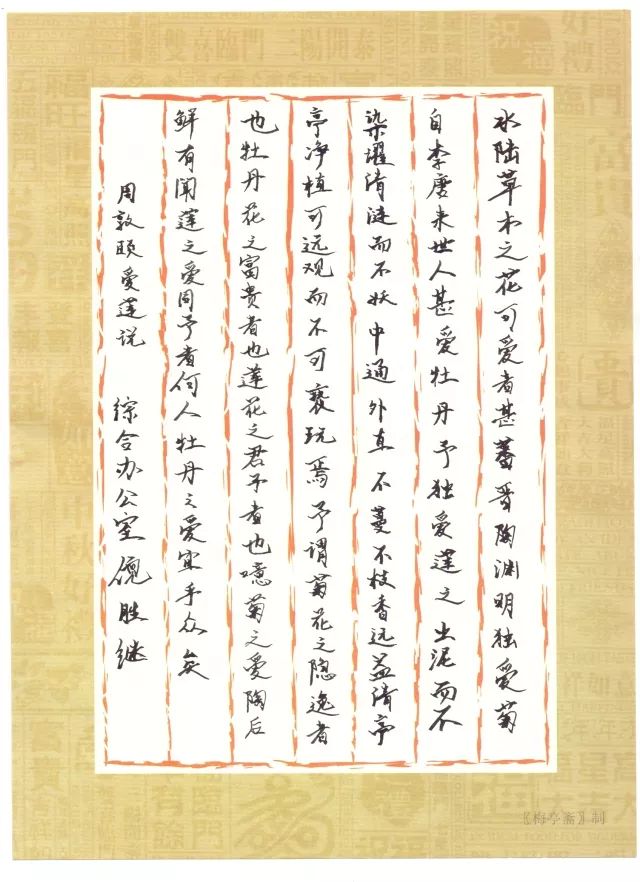 水陆草木之花可爱者甚蕃晋陶渊明独爱菊
自李唐来世人甚爱牡丹予独爱莲之出泥而不
染濯清涟而不妖中通外直不蔓不枝香远益清亭
亭净植可远观而不可亵玩焉予谓菊花之隐逸者
也牡丹花之富贵者也莲花之君子者也噫菊之爱陶后
鲜有闻莲之爱同予者何人牡丹之爱宜乎众矣
周敦颐爱莲说 综合办公室 倪胜继
《梅亭斋》制